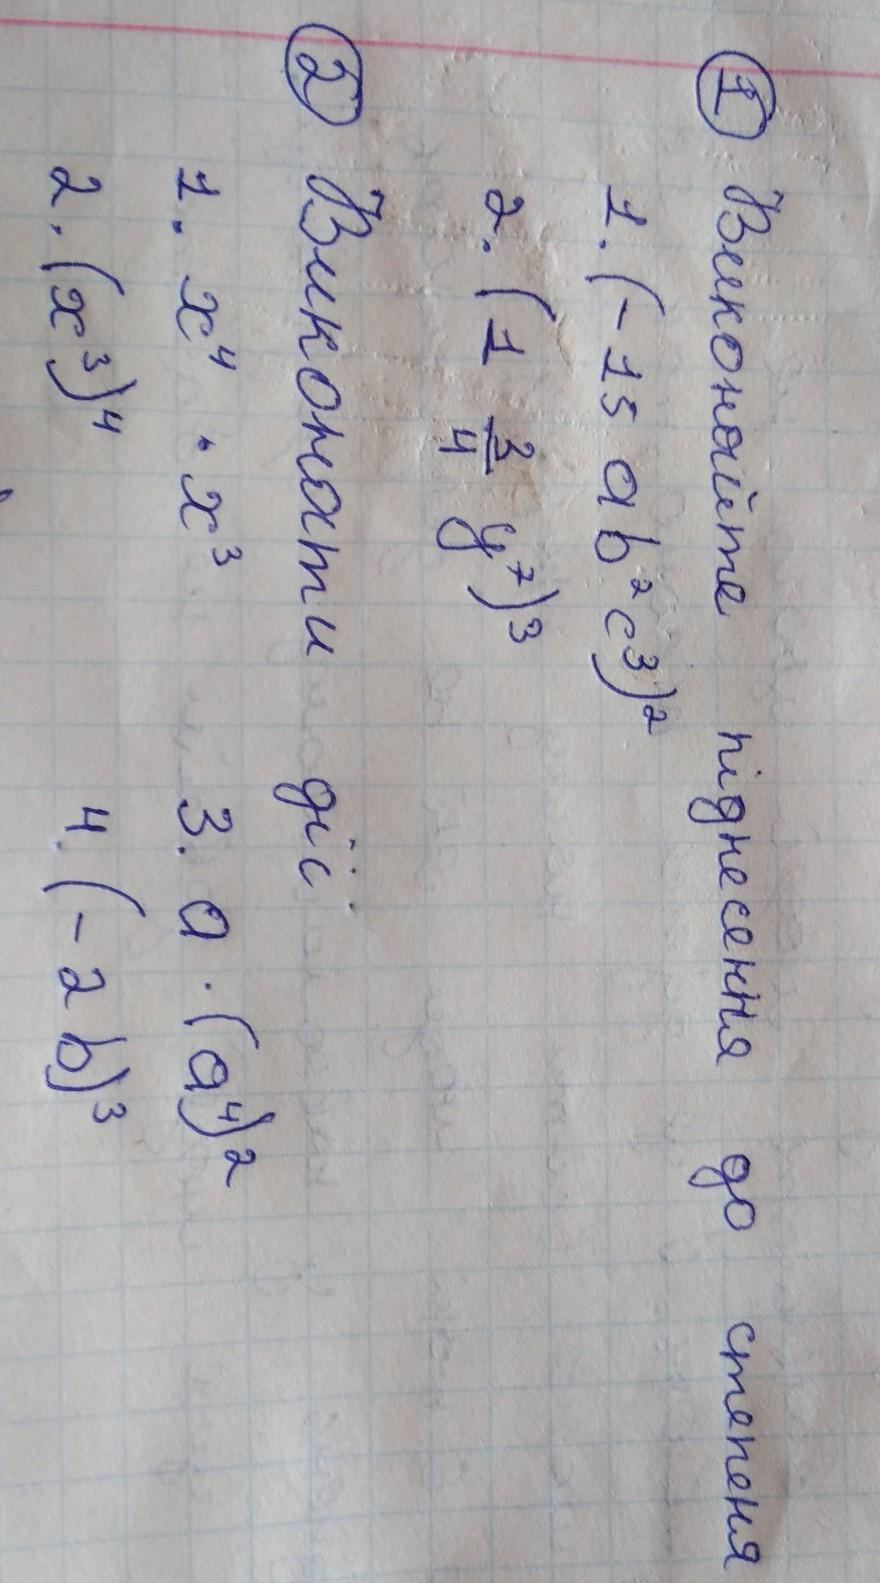 ① Виконайте піднесення до степеня
1. (-15 ab²c³)²
2. (1 3/4 y⁷)³
② Виконати дії
1. x⁴ · x³ 3. a · (a⁴)²
2. (x³)⁴ 4. (-2b)³